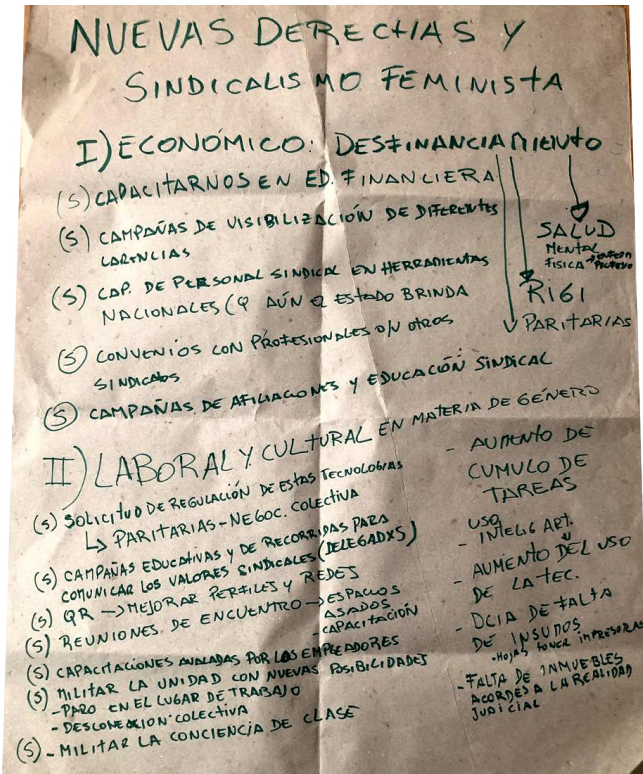 NUEVAS DERECHAS Y
SINDICALISMO FEMINISTA
I) ECONÓMICO: DESFINANCIAMIENTO
(S) CAPACITARNOS EN ED. FINANCIERA
(S) CAMPAÑAS DE VISIBILIZACIÓN DE DIFERENTES
CARENCIAS
(S) CAP. DE PERSONAL SINDICAL EN HERRAMIENTAS
NACIONALES (Q AÚN EL ESTADO BRINDA
(S) CONVENIOS CON PROFESIONALES O/Y OTROS
SINDICATOS
(S) CAMPAÑAS DE AFILIACIONES Y EDUCACIÓN SINDICAL
SALUD
MENTAL
FISICA →
RIGI
PARITARIAS
II) LABORAL Y CULTURAL EN MATERIA DE GÉNERO
(S) SOLICITUD DE REGULACIÓN DE ESTAS TECNOLOGIAS
↳ PARITARIAS - NEGOC. COLECTIVA
(S) CAMPAÑAS EDUCATIVAS Y DE RECORRIDAS PARA
COMUNICAR LOS VALORES SINDICALES (DELEGADXS)
(S) QR → MEJORAR PERFILES Y REDES
(S) REUNIONES DE ENCUENTRO → ESPACIOS
ASADOS
- CAPACITACIÓN
(S) CAPACITACIONES AVALADAS POR LOS EMPLEADORES
(S) MILITAR LA UNIDAD CON NUEVAS POSIBILIDADES
- PARO EN EL LUGAR DE TRABAJO
- DESCONEXION COLECTIVA
(S) - MILITAR LA CONCIENCIA DE CLASE
- AUMENTO DE
CUMULO DE
TAREAS
USO
- INTELIG ART.
- AUMENTO DEL USO
DE LA TEC.
- DCIA DE FALTA
DE INSUMOS
- Hojas toner IMPRESORAS
- FALTA DE INMUEBLES
ACORDES A LA REALIDAD
JUDICIAL